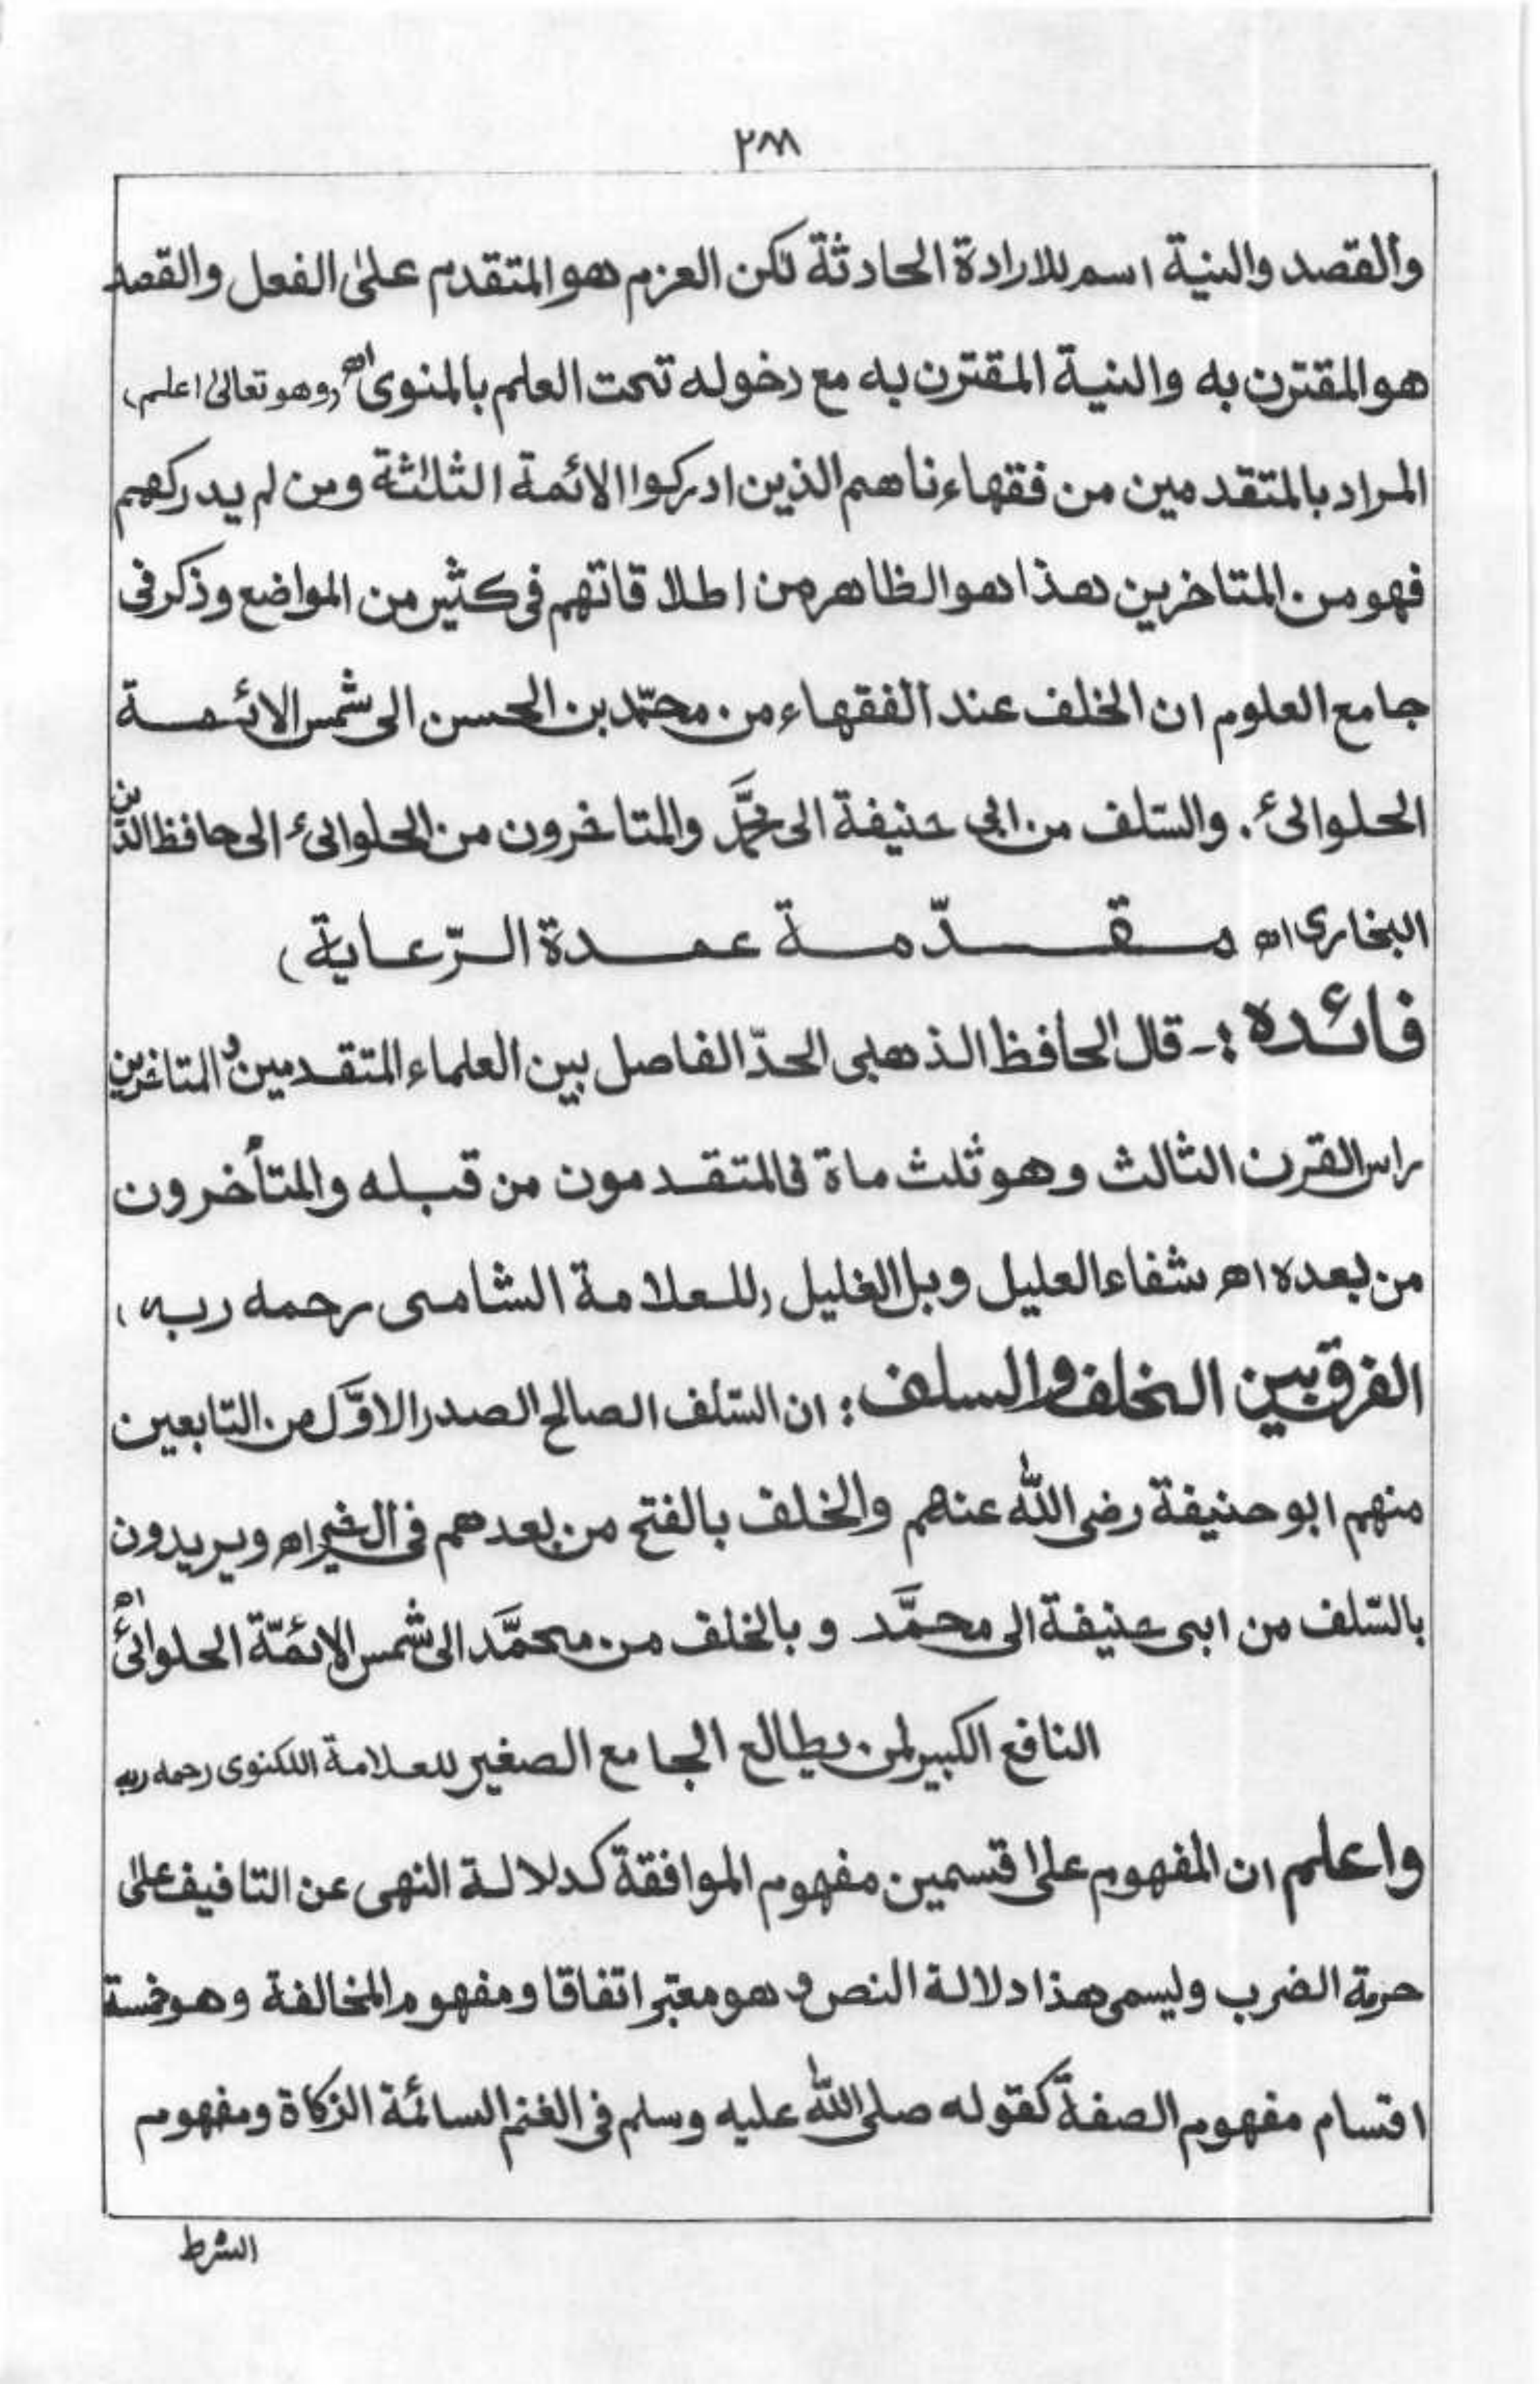 ٢٨٨
والقصد والنية اسم للارادة الحادثة لكن العزم هو المتقدم على الفعل والقصد
هو المقترن به والنية المقترن به مع دخوله تحت العلم بالمنوى اھ (وهو تعالىٰ اعلم)
المراد بالمتقدمين من فقهاءنا هم الذين ادركوا الائمة الثلاثة ومن لم يدركهم
فهو من المتاخرين هذا هو الظاهر من اطلاقاتهم فى كثير من المواضع وذكر فى
جامع العلوم ان الخلف عند الفقهاء من محمّد بن الحسن الى شمس الائمة
الحلوائىء. والسّلف من ابي حنيفة الى محمَّد والمتاخرون من الحلوائىء الى حافظ الدّين
البخارى اھ مقدّمة عمدة الرّعاية)
فائده :- قال الحافظ الذهبى الحدّ الفاصل بين العلماء المتقدمين و المتاخرين
راس القرن الثالث وهو ثلث ماة فالمتقدمون من قبله والمتأخرون
من بعده اھ شفاء العليل وبل الغليل (للعلامة الشامى رحمه ربه)
الفرق بين الخلف والسلف : ان السّلف الصالح الصدر الاوَّل من التابعين
منهم ابو حنيفة رضى اللّٰه عنهم والخلف بالفتح من بعدهم فى الخير اھ ويريدون
بالسّلف من ابى حنيفة الى محمَّد وبالخلف من محمَّد الى شمس الائمّة الحلوائىء اھ
النافع الكبير لمن يطالع الجامع الصغير للعلامة اللكنوى رحمه ربه
واعلم ان المفهوم على اقسمين مفهوم الموافقة كدلالة النهى عن التافيف على
حرمة الضرب وليسمى هذا دلالة النص و هو معتبر اتفاقا ومفهوم المخالفة وهو خمسة
اقسام مفهوم الصفة كقوله صلى اللّٰه عليه وسلم فى الغنم السائمة الزكاة ومفهوم
الشرط